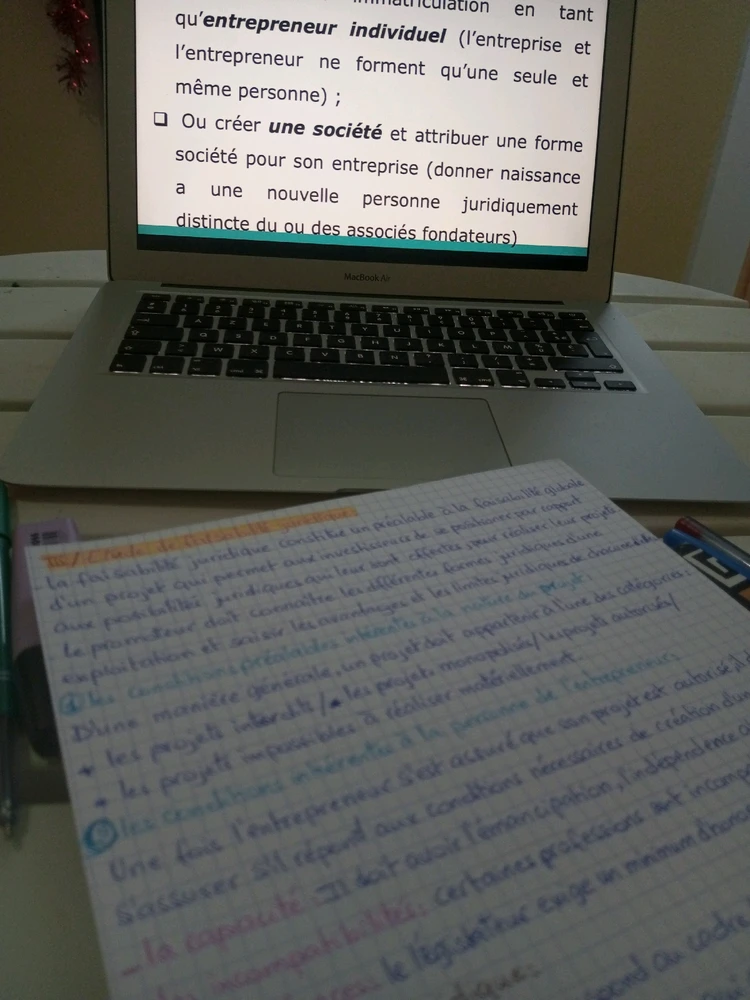 immatriculation en tant
qu'entrepreneur individuel (l'entreprise et
l'entrepreneur ne forment qu'une seule et
même personne) ;
❑ Ou créer une société et attribuer une forme
société pour son entreprise (donner naissance
a une nouvelle personne juridiquement
distincte du ou des associés fondateurs)
MacBook Air
III/ Etude de faisabilité juridique
La faisabilité juridique constitue un préalable à la faisabilité globale
d'un projet qui permet aux investisseurs de se positionner par rapport
aux possibilités juridiques qui leur sont offertes, pour réaliser leur projets
Le promoteur doit connaître les différentes formes juridiques d'une
exploitation et saisir les avantages et les limites juridiques de chacune
① les conditions préalables inhérentes à la nature du projet:
D'une manière générale, un projet doit appartenir à l'une des catégories:
+ les projets interdits / les projets monopolisés / les projets autorisés /
+ les projets impossibles à réaliser matériellement.
② les conditions inhérentes à la personne de l'entrepreneur:
Une fois l'entrepreneur s'est assuré que son projet est autorisé, il
s'assurer s'il répond aux conditions nécessaires de création d'un
- la capacité: Il doit avoir l'émancipation, l'indépendance
les incompatibilités: certaines professions sont
le législateur exige un minimum d'
au cadre